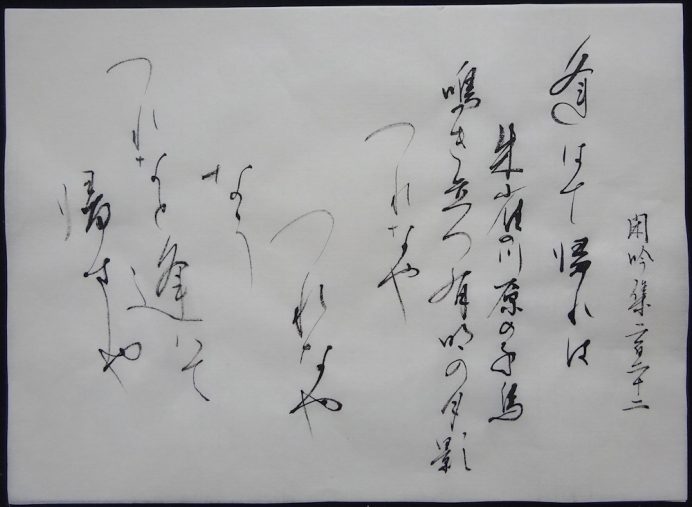 閑吟集二百二十二
逢はて帰れは
朱雀の川原の千鳥
鳴き立つ有明の月影
つれなや
つれなや
なう
つれなと逢はて
帰すや